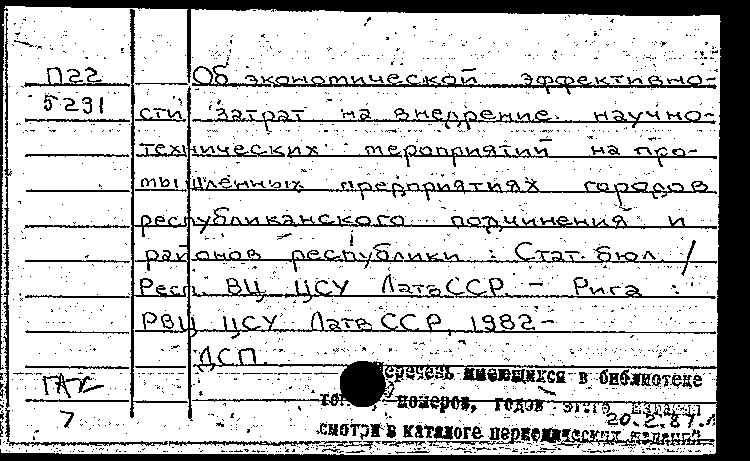 П22
5231
Об экономической эффективно-
сти затрат на внедрение научно-
технических мероприятий на про-
мышленных предприятиях городов
республиканского подчинения и
районов республики : Стат. бюл. /
Респ. ВЦ ЦСУ ЛатвССР. - Рига :
РВЦ ЦСУ Латв ССР, 1982-
ДСП.
Перечень имеющихся в библиотеке
номеров, годов этого издания
20.2.87.
смотри в каталоге периодических изданий
7